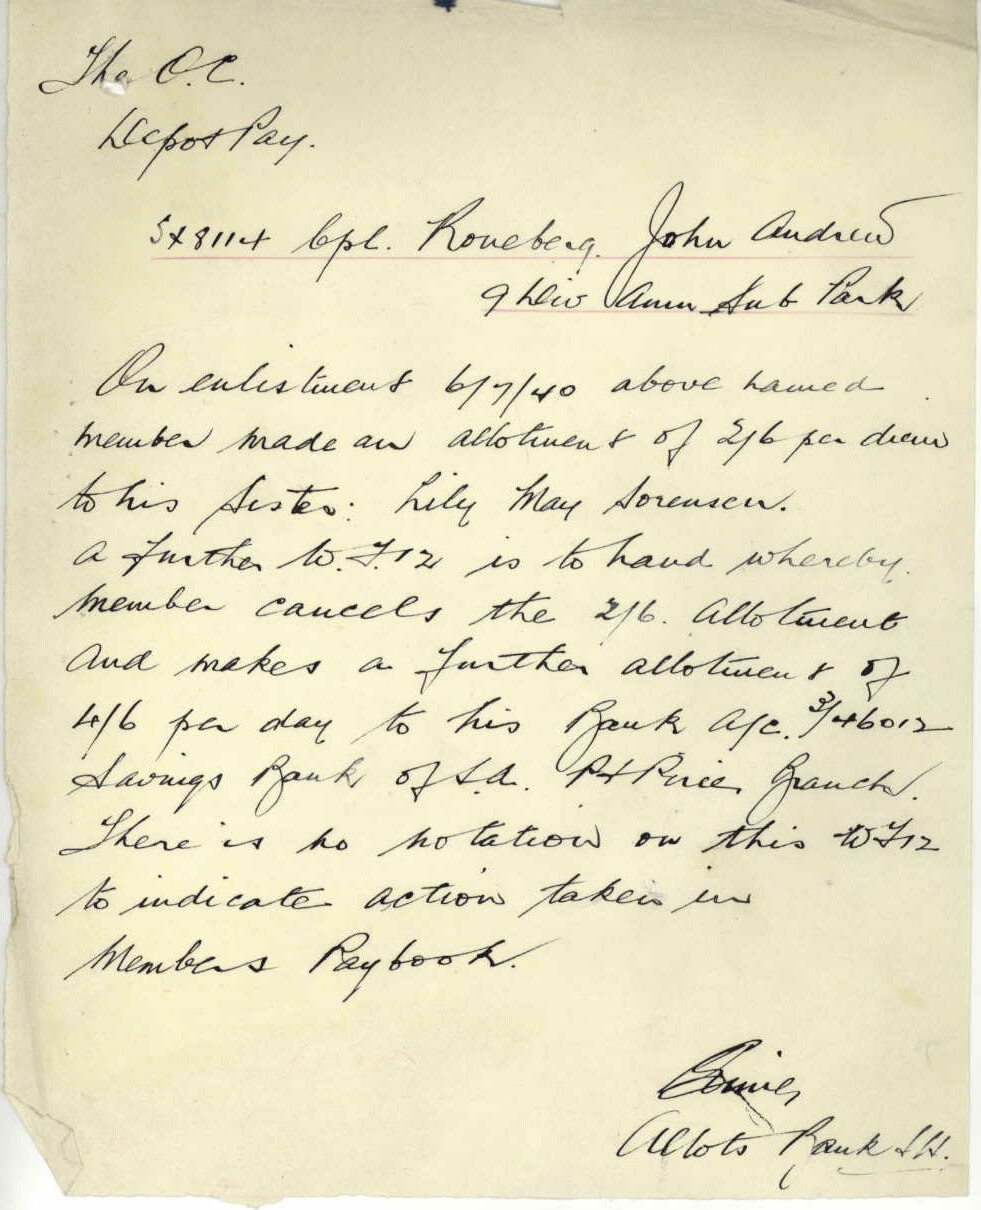 The O.C.
Depot Pay.
SX8114 Cpl. Roneberg. John Andrew
9 Div Amm Sub Park
On enlistment 6/7/40 above named
member made an allotment of 2/6 per diem
to his Sister: Lily May Sorensen.
A further W.F.12 is to hand whereby
member cancels the 2/6. allotment
and makes a further allotment of
4/6 per day to his Bank A/c. 3/46012
Savings Bank of S.A. Pt Pirie Branch.
There is no notation on this WF12
to indicate action taken in
Members Paybook.
Allots Bank